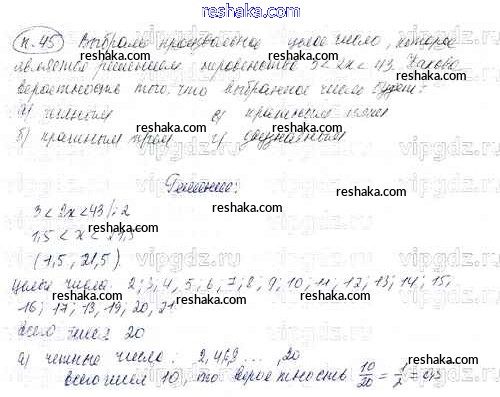 reshaka.com
п. 45 Выбрали произвольное целое число, которое
является решением неравенства 3 < 2x < 43. Какова
вероятность того, что выбранное число будет:
а) четным в) кратным пяти
б) кратным трем г) двузначным
Решение:
3 < 2x < 43 |: 2
1,5 < x < 21,5
(1,5, 21,5)
целые числа: 2; 3; 4, 5, 6, 7; 8, 9; 10, 11, 12; 13; 14; 15,
16; 17; 18, 19, 20, 21
всего чисел 20
а) четные числа: 2, 4, 6, 8 ... , 20
всего чисел 10, то вероятность 10/20 = 1/2 = 0,5
reshaka.com